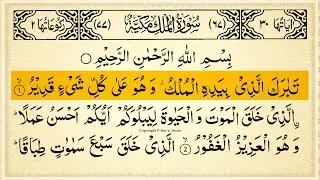 اٰیَاتُهَا ٣٠ (٦٧) سُوْرَۃُ الْمُلْكِ مَكِّیَّۃٌ (٧٧) رُكُوْعَاتُهَا ٢
بِسْمِ اللّٰهِ الرَّحْمٰنِ الرَّحِیْمِ
تَبٰرَكَ الَّذِیْ بِیَدِهِ الْمُلْكُ وَ هُوَ عَلٰی كُلِّ شَیْءٍ قَدِیْرُ ۙ﴿١﴾
الَّذِیْ خَلَقَ الْمَوْتَ وَ الْحَیٰوۃَ لِیَبْلُوَكُمْ اَیُّكُمْ اَحْسَنُ عَمَلًا ؕ
وَ هُوَ الْعَزِیْزُ الْغَفُوْرُ ۙ﴿٢﴾ الَّذِیْ خَلَقَ سَبْعَ سَمٰوٰتٍ طِبَاقًا ؕ